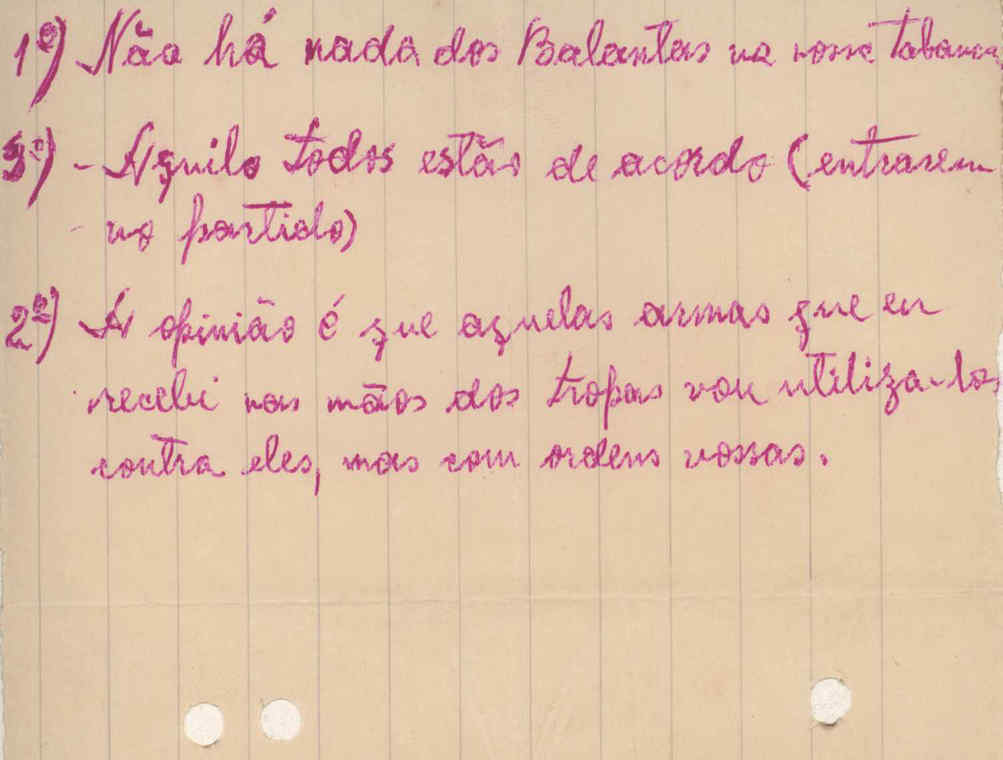 1º) Não há nada dos Balantas na nossa Tabanca
3º) - Aquilo todos estão de acordo (entrarem
- no partido)
2º) A opinião é que aquelas armas que eu
recebi nas mãos dos tropas vou utiliza-las
contra eles, mas com ordens vossas.